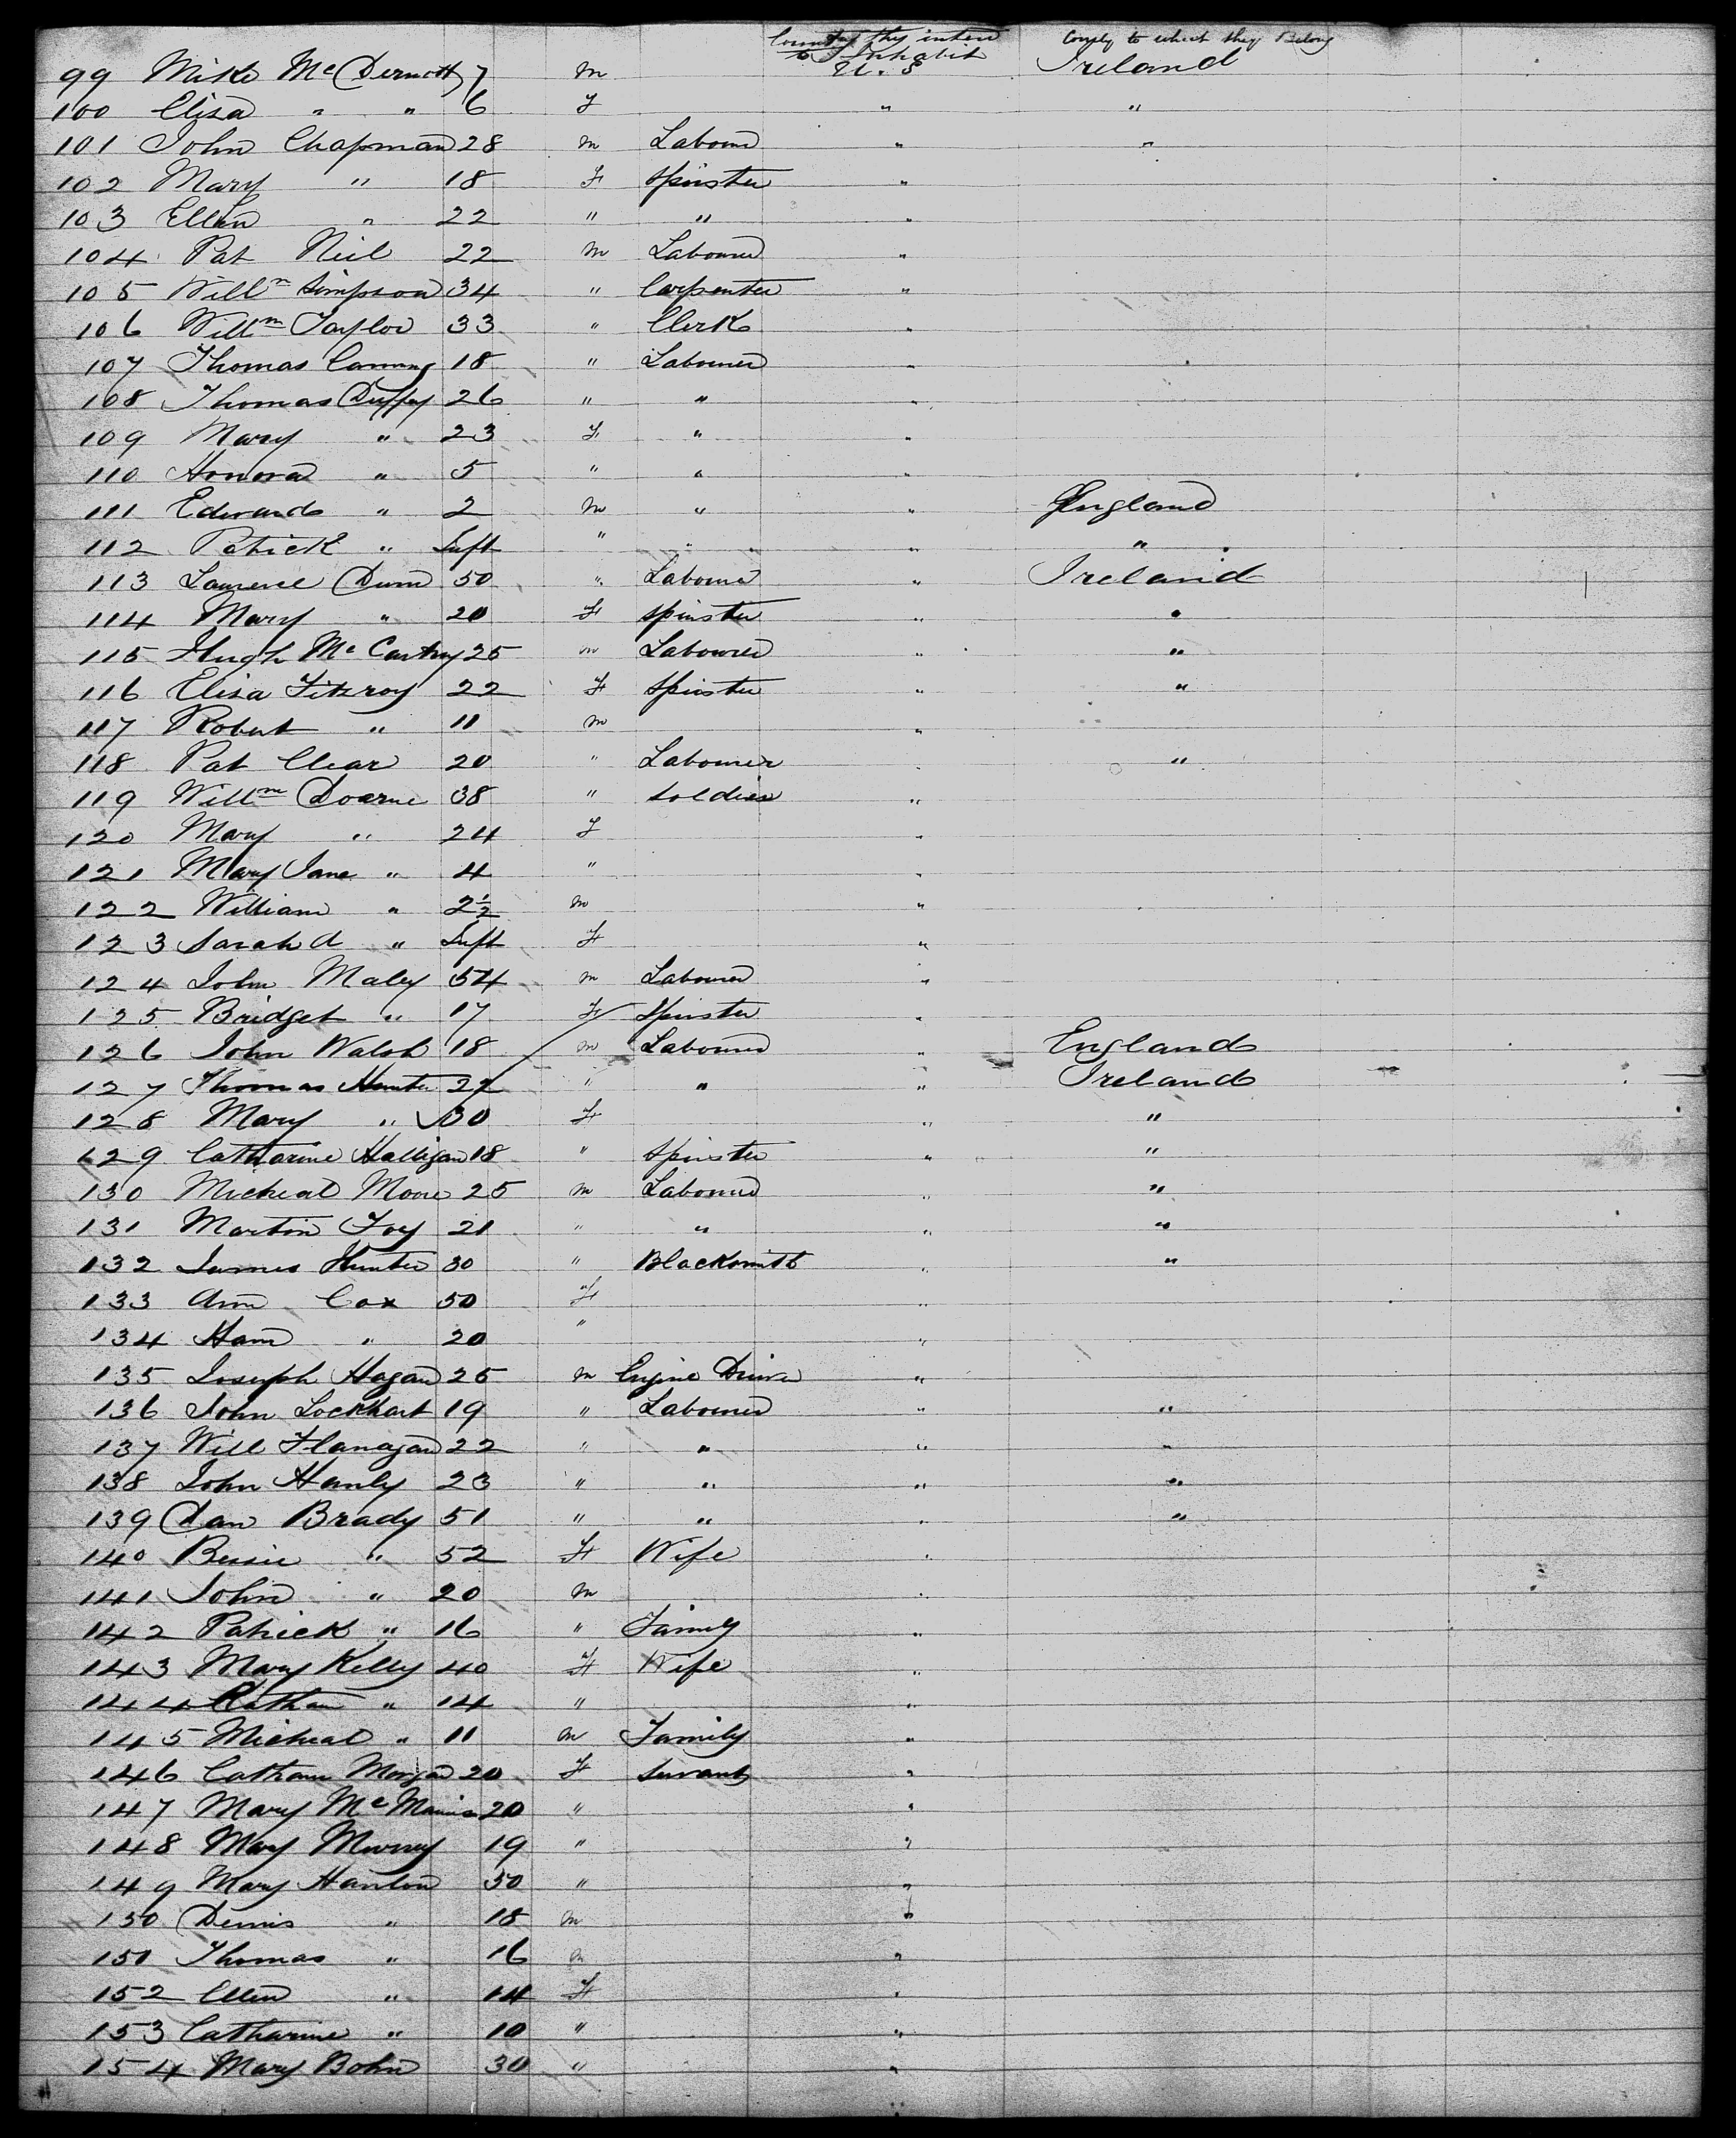 Country they intend to Inhabit County to which they Belong
99 Mike Mc Dermott 7 m U. S Ireland
100 Elisa " " 6 F " "
101 John Chapman 28 m Labourer " "
102 Mary " 18 F Spinster "
103 Ellen " 22 " " "
104 Pat Neil 22 m Labourer "
105 Willm Simpson 34 " Carpenter "
106 Willm Taylor 33 " Clerk "
107 Thomas 18 " Labourer "
108 Thomas Duffey 26 " " "
109 Mary " 23 F " "
110 Honora " 5 " " "
111 Edward " 2 m " " England
112 Patrick " Inft " " " "
113 Laurence Dunn 50 " Labourer " Ireland
114 Mary " 20 F Spinster " "
115 Hugh Mc Cartny 25 m Labourer " "
116 Elisa Fitzroy 22 F Spinster " "
117 Robert " 11 m "
118 Pat Clear 20 " Labourer " "
119 Willm Doarne 38 " Soldier "
120 Mary " 24 F "
121 Mary Jane " 4 " "
122 William " 2½ m "
123 Sarah A " Inft F "
124 John Maley 54 m Labourer "
125 Bridget " 17 F Spinster "
126 John Walsh 18 m Labourer " England
127 Thomas Hunter 27 " " " Ireland
128 Mary " 30 F " "
129 Catharine Halligan 18 " Spinster " "
130 Micheal Moore 25 m Labourer " "
131 Martin Foy 21 " " " "
132 James Hunter 30 " Blacksmith " "
133 Ann Cox 50 F "
134 Hann " 20 " "
135 Joseph Hagan 25 m Engine Driver "
136 John Lockhart 19 " Labourer " "
137 Will Flanagan 22 " " " "
138 John Hanly 23 " " " "
139 Dan Brady 51 " " " "
140 Bessie " 52 F Wife "
141 John " 20 m "
142 Patrick " 16 " Family "
143 Mary Kelly 40 F Wife "
144 Cathan " 14 " "
145 Micheal " 11 m Family "
146 Catham Morgan 20 F Servants "
147 Mary Mc 20 " "
148 Mary Murrey 19 " "
149 Mary Hanlon 50 " "
150 Dennis " 18 m "
150 Thomas " 16 m "
152 Ellen " 14 F "
153 Catharine " 10 " "
154 Mary Bohn 30 " "